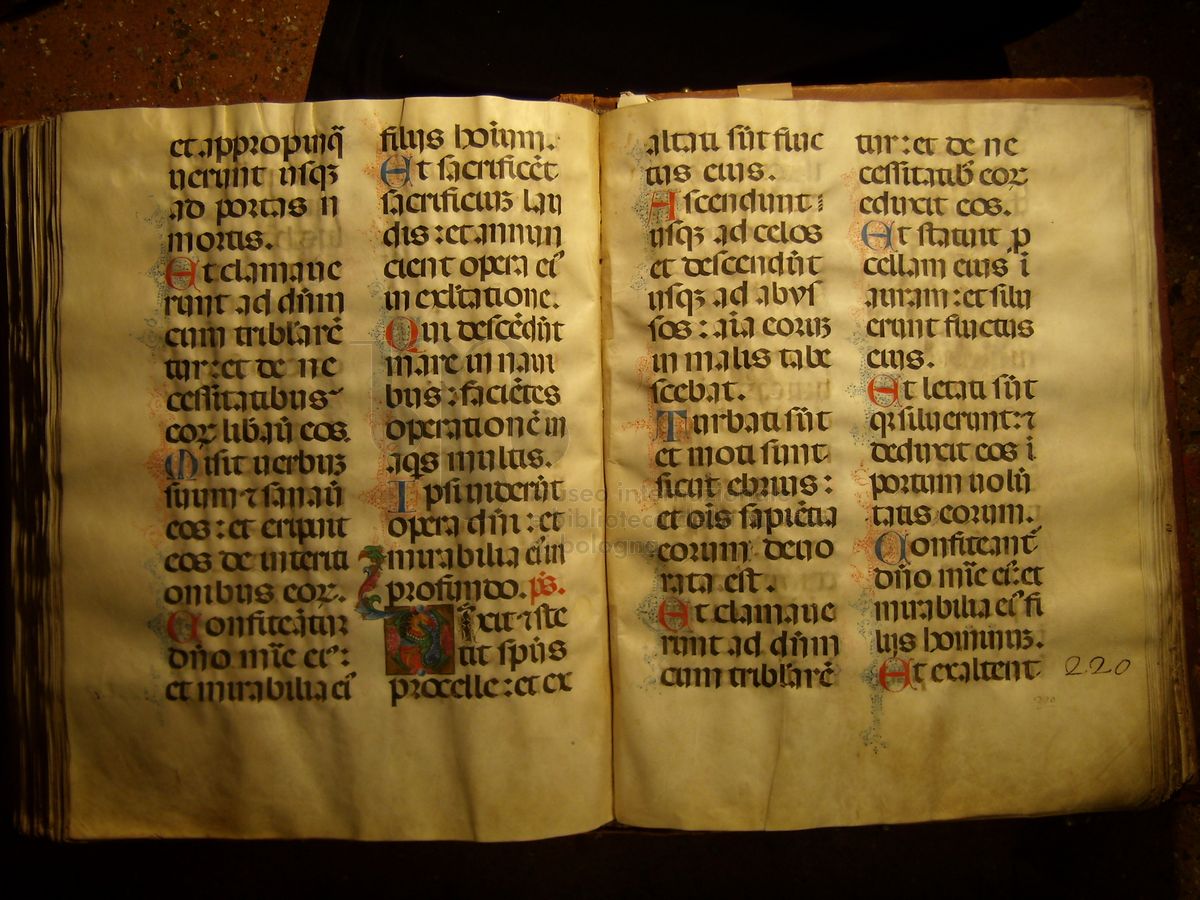 et appropinq̃
uerunt usqꝫ
ad portas ı̄
mortis.
Et clamaue
runt ad dn̄m
cum tribl̃arẽ
tur: et de ne
cessitatibus
eoꝝ libaũ eos.
Misit uerbuꝫ
suum ⁊ sanaũ
eos: et eripuit
eos de interiti
onibus eoꝝ.
Confiteãtur
dño mĩe ei᷒:
et mirabilia ei᷒
filijs hoĩum.
Et sacrificẽt
sacrificiuꝫ lau
dis: et annun
cient opera ei᷒
in exl̃tatione.
Qui descẽdũt
mare in naui
bus: faciẽtes
operationẽ in
aqs multis.
Ipsi uiderũt
opera dñi: et
mirabilia ei᷒ in
profundo. ps̃.
Dixit ⁊ ste
tit spũs
procelle: et ex
altati sũt fluc
tus eius.
Ascendunt
usqꝫ ad celos
et descendũt
usqꝫ ad abys
sos: aĩa eoruꝫ
in malis tabe
scebat.
Turbati sũt
et moti sunt
sicut ebrius:
et oĩs sapiẽtia
eorum deuo
rata est.
Et clamaue
runt ad dn̄m
cum tribl̃arẽ
tur: et de ne
cessitatibꝫ eoꝝ
eduxit eos.
Et statuit ꝓ
cellam eius ĩ
auram: et silu
erunt fluctus
eius.
Et letati sũt
q̃ siluerunt: ⁊
deduxit eos ĩ
portum uolũ
tatis eorum.
Confiteant᷑
dño mĩe ei᷒: et
mirabilia ei᷒ fi
lijs hominuꝫ.
Et exaltent
220
museo internazionale
biblioteca
bologna